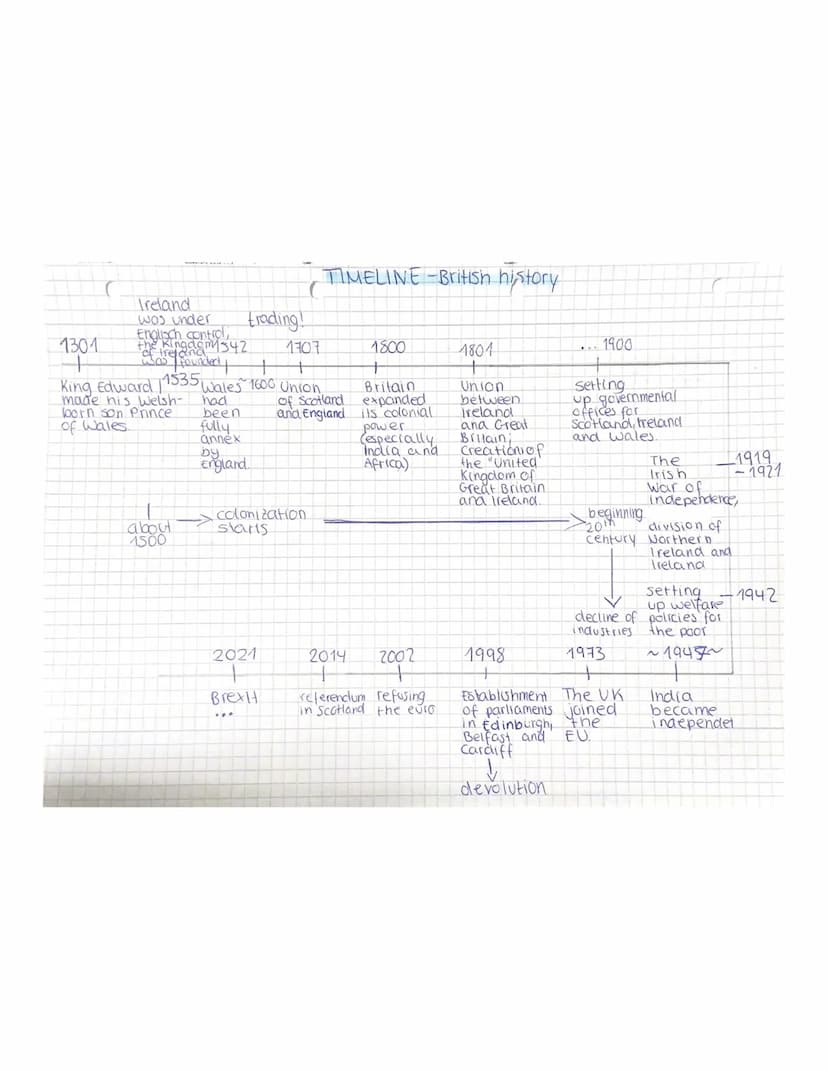 TIMELINE - British history
Ireland
was under
Englisch control,
the Kingdom
of Ireland
was founded
trading!
1301
1542
1707
1800
1801
... 1900
King Edward
made his Welsh-
born son Prince
of Wales.
1535
Wales
had
been
fully
annex
by
England.
~1600
Union
of Scotland
and England
Britain
expanded
its colonial
power
(especially
India and
Africa)
Union
between
Ireland
and Great
Britain;
Creation of
the "United
Kingdom of
Great Britain
and Ireland.
setting
up governmental
offices for
Scotland, Ireland
and Wales.
The
Irish
War of
independence,
division of
Northern
Ireland and
Ireland
1919
- 1921
about
1500
colonization
starts
beginning
20th
century
decline of
industries
setting
up welfare
policies for
the poor
1942
2021
2014
2002
1998
1973
~1947~
Brexit
...
referendum
in Scotland
refusing
the euro
Establishment
of parliaments
in Edinburgh,
Belfast and
Cardiff
devolution
The UK
joined
the
EU.
India
became
independet